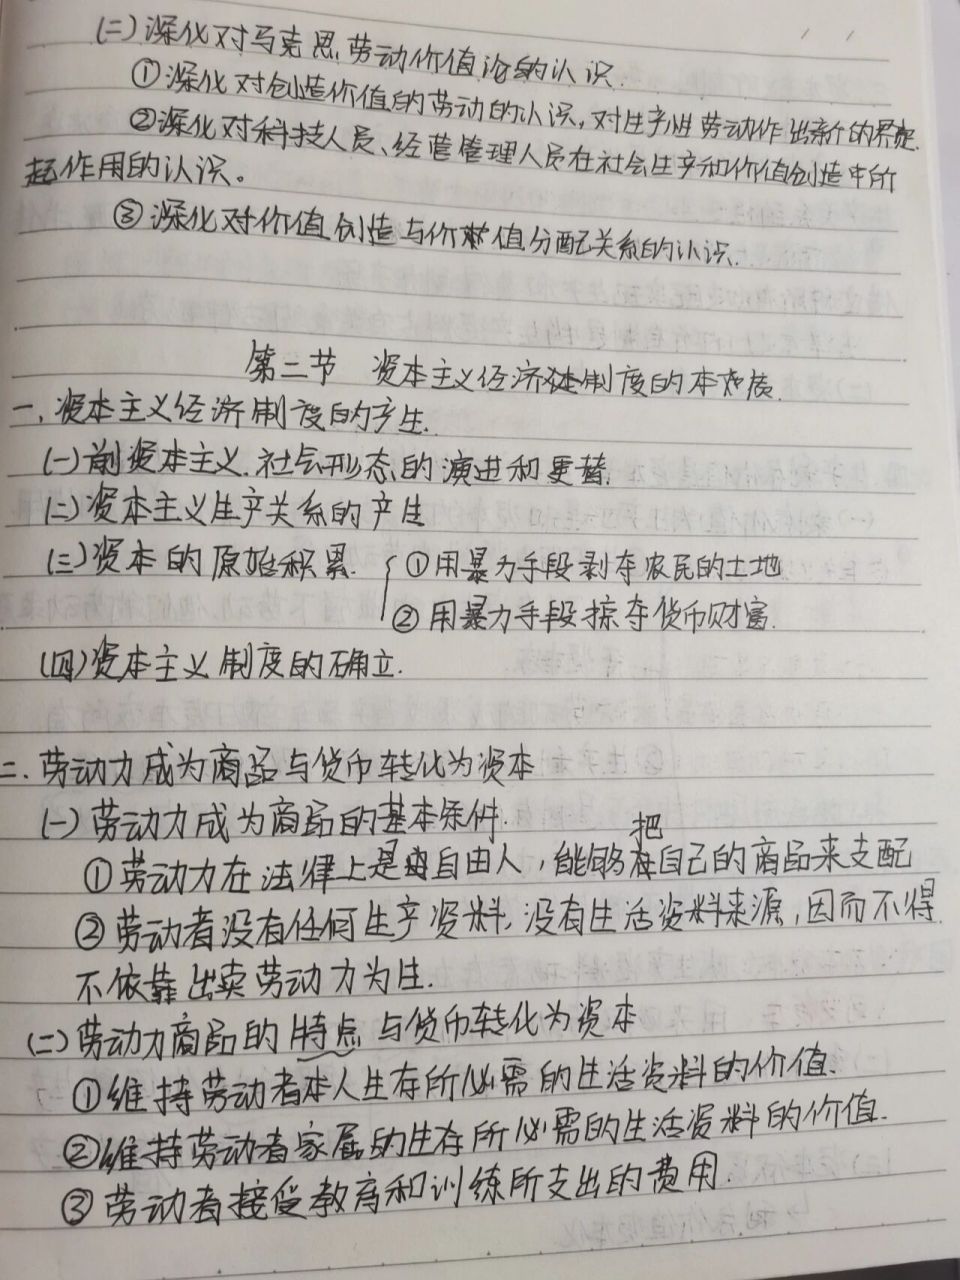 (二)深化对马克思劳动价值论的认识.
①深化对创造价值的劳动的认识,对生产性劳动作出新的界定.
②深化对科技人员、经营管理人员在社会生产和价值创造中所
起作用的认识。
③深化对价值创造与价值分配关系的认识.
第二节 资本主义经济制度的本质
一.资本主义经济制度的产生.
(一)前资本主义.社会形态的演进和更替.
(二)资本主义生产关系的产生
(三)资本的原始积累. ①用暴力手段剥夺农民的土地
②用暴力手段掠夺货币财富.
(四)资本主义制度的确立.
二.劳动力成为商品与货币转化为资本
(一)劳动力成为商品的基本条件.
①劳动力在法律上是自由人,能够把自己的商品来支配
②劳动者没有任何生产资料,没有生活资料来源,因而不得
不依靠出卖劳动力为生.
(二)劳动力商品的特点与货币转化为资本
①维持劳动者本人生存所必需的生活资料的价值.
②维持劳动者家属的生存所必需的生活资料的价值.
③劳动者接受教育和训练所支出的费用.